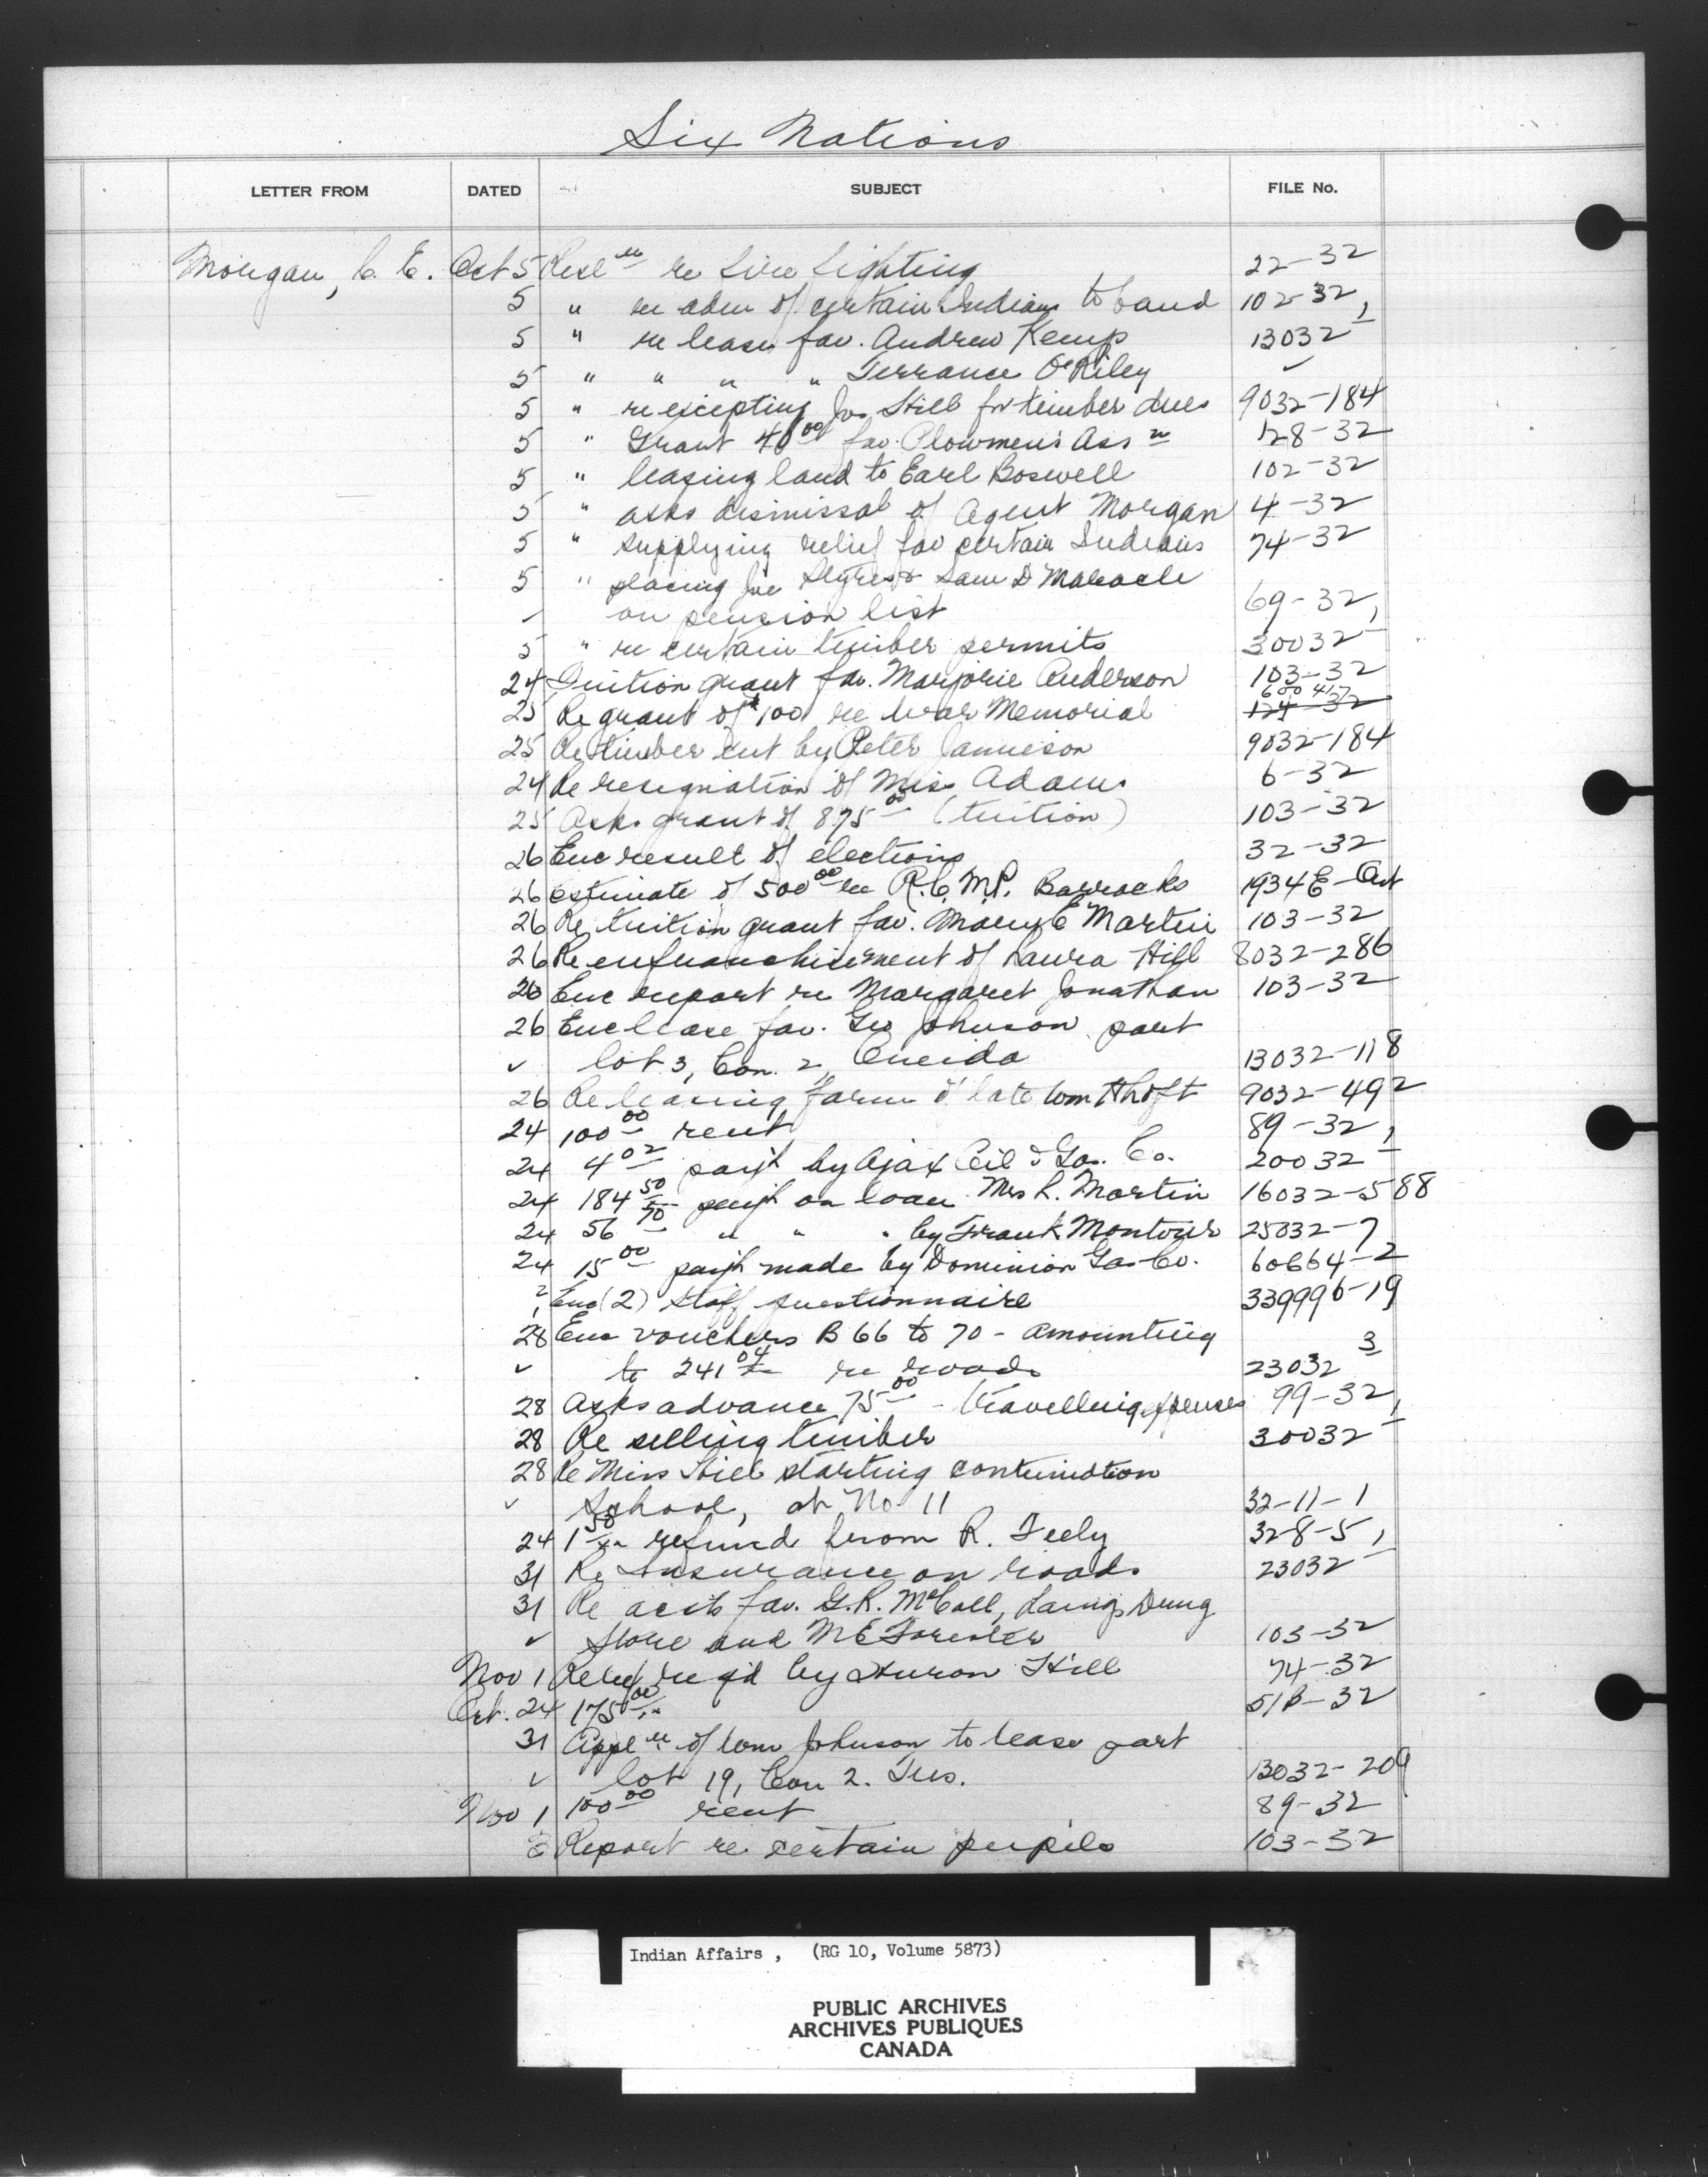 Six Nations
LETTER FROM DATED SUBJECT FILE No.
Morgan, C. E. Oct 5 Resl re fire fighting 22-32
5 " re adm of certain Indians to band 102-32
5 " re lease fav. Andrew Kemp 13032-1
5 " " " " Terrance O'Riley ✓
5 " re excepting Jos Hill for timber dues 9032-184
5 " Grant 40 00 fav. Plowmen's Assn 128-32
5 " leasing land to Earl Boswell 102-32
5 " asks dismissal of Agent Morgan 4-32
5 " supplying relief fav certain Indians 74-32
5 " placing Joe & Sam D Maracle
✓ on pension list 69-32
5 " re certain timber permits 30032-1
24 Tuition grant fav. Marjorie Anderson 103-32
25 Re grant of $100 re War Memorial 124-32 600 417
25 Re timber cut by Peter Jamieson 9032-184
24 Re resignation of Miss Adams 6-32
25 Asks grant of 875 00 (tuition) 103-32
26 Enc result of elections 32-32
26 estimate of 500 00 re R.C.M.P. Barracks 1934 E-Ont
26 Re tuition grant fav. Mary E Martin 103-32
26 Re enfranchisement of Laura Hill 8032-286
26 Enc report re Margaret Jonathan 103-32
26 Enc lease fav. Geo Johnson part
✓ lot 3, Con. 2, Oneida 13032-118
26 Re leasing farm of late Wm 9032-492
24 100 00 rent 89-32
24 4 02 paym't by Ajax Oil & Gas. Co. 20032-1
24 184 50 paym't on loan Mrs L. Martin 16032-588
24 56 70 " " " by Frank Montour 25032-7
24 15 00 paym't made by Dominion Gas Co. 60664-2
Enc (2) staff questionnaire 339996-19
28 Enc vouchers B 66 to 70 - amounting
✓ to 241 04 re roads 23032-3
28 Asks advance 75 00 - travelling expenses 99-32
28 Re selling timber 30032-1
28 Re Miss Hill starting continuation
✓ School, at No 11 32-11-1
24 1 50 refund from R. Feely 32-8-5
31 Re Insurance on roads 23032-1
31 Re accts fav. G.R. McColl, Laings Drug
✓ Store and Forester 103-32
Nov 1 Relief req'd by Huron Hill 74-32
Oct. 24 175 00 51B-32
31 Appl of Wm Johnson to lease part
✓ lot 19, Con 2. Tus. 13032-209
Nov 1 100 00 rent 89-32
Report re certain pupils 103-32
Indian Affairs , (RG 10, Volume 5873)
PUBLIC ARCHIVES
ARCHIVES PUBLIQUES
CANADA